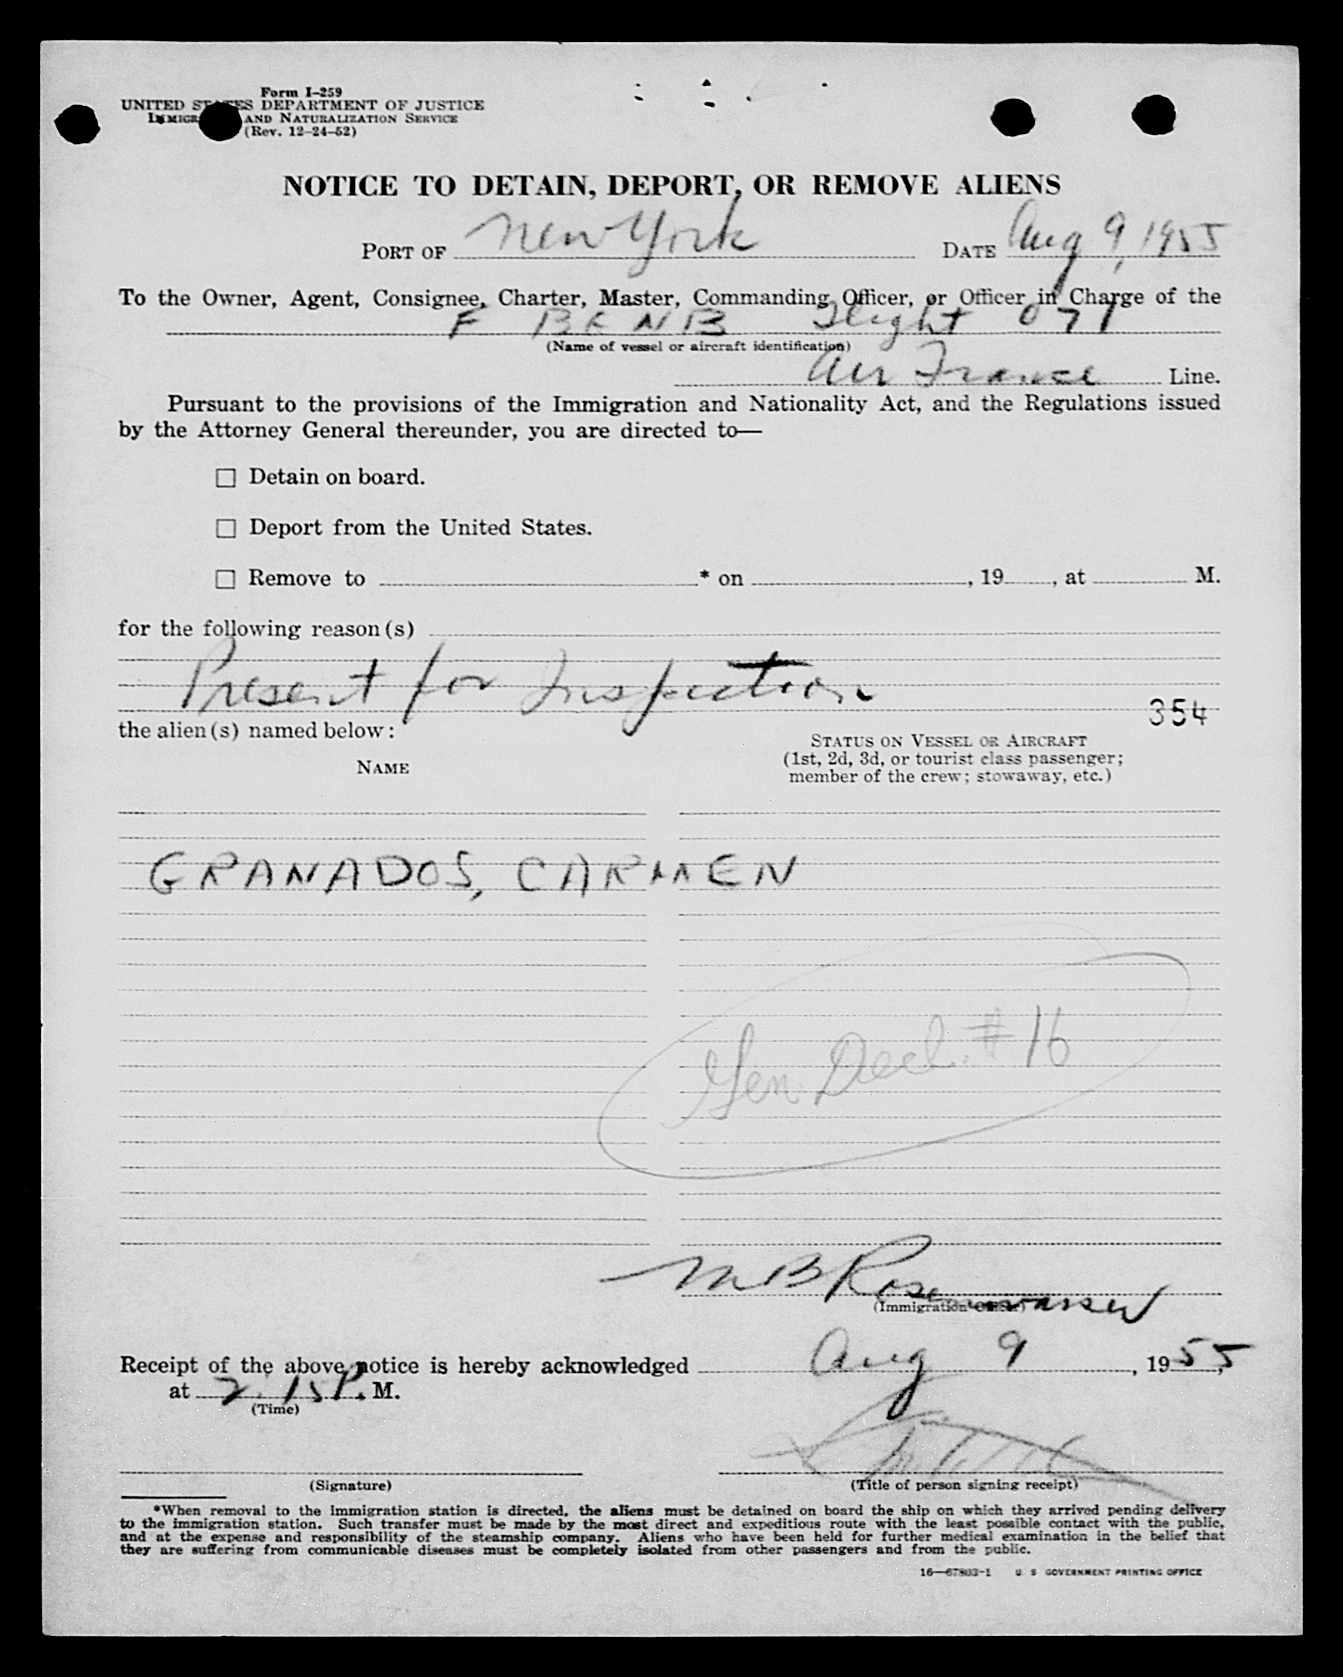 Form I-259
UNITED STATES DEPARTMENT OF JUSTICE
IMMIGR AND NATURALIZATION SERVICE
(Rev. 12-24-52)
NOTICE TO DETAIN, DEPORT, OR REMOVE ALIENS
PORT OF New York DATE Aug 9, 1955
To the Owner, Agent, Consignee, Charter, Master, Commanding Officer, or Officer in Charge of the
F BENB Flight 071
(Name of vessel or aircraft identification)
Air France Line.
Pursuant to the provisions of the Immigration and Nationality Act, and the Regulations issued
by the Attorney General thereunder, you are directed to—
☐ Detain on board.
☐ Deport from the United States.
☐ Remove to * on , 19 , at M.
for the following reason(s)
Present for Inspection
354
the alien(s) named below:
NAME
STATUS ON VESSEL OR AIRCRAFT
(1st, 2d, 3d, or tourist class passenger;
member of the crew; stowaway, etc.)
GRANADOS, CARMEN
Gen. Decl. #16
M B Rosenwasser
(Immigration Officer)
Receipt of the above notice is hereby acknowledged Aug 9, 1955,
at 2:15 P. M.
(Time)
(Signature)
(Title of person signing receipt)
*When removal to the immigration station is directed, the aliens must be detained on board the ship on which they arrived pending delivery
to the immigration station. Such transfer must be made by the most direct and expeditious route with the least possible contact with the public,
and at the expense and responsibility of the steamship company. Aliens who have been held for further medical examination in the belief that
they are suffering from communicable diseases must be completely isolated from other passengers and from the public.
16—67803-1 U. S. GOVERNMENT PRINTING OFFICE